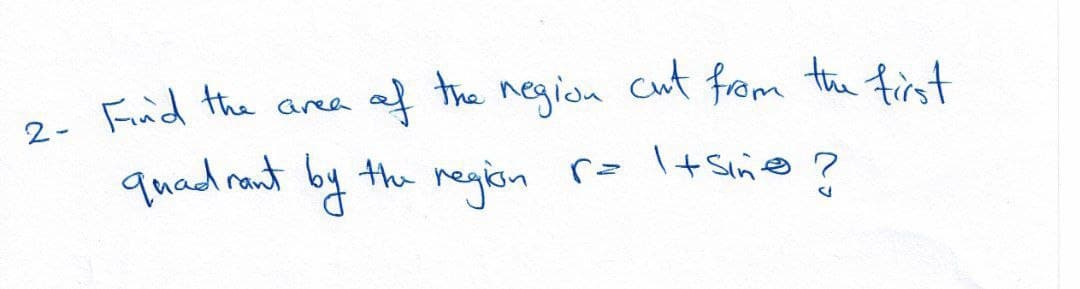 2- Find the area of the region cut from the first
quadrant by the region r= 1+sinθ ?